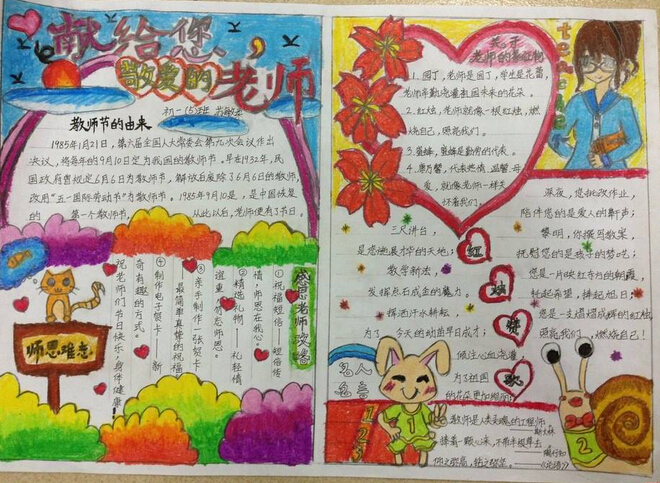 献给您，
敬爱的老师
初一(5)班
教师节的由来
1985年1月21日，第六届全国人大常委会第九次会议作出
决议，将每年的9月10日定为我国的教师节。早在1932年，民
国政府曾规定6月6日为教师节，解放后废除了6月6日的教师节，
改用“五一国际劳动节”为教师节。1985年9月10是，是中国恢复
的 第一个教师节， 从此以后，老师便有了节日。
感恩老师
①祝福短信——短信传
情，师恩在我心。
②精选礼物——礼轻情
谊重，
③亲手制作一张贺卡——
最简单真挚的祝福
④制作电子贺卡——新
奇有趣的方式。
祝老师们节日快乐，身体健康！
师恩难忘
关于
老师的象征物
1.园丁，老师是园丁，学生是花蕾，
老师辛勤浇灌祖国未来的花朵。
2.红烛，老师就像一根红烛，燃
烧自己，照亮我们。
3.蜜蜂，蜜蜂是勤劳的代表。
4.康乃馨，代表热情、温馨、母
爱，就像老师一样关
怀着我们。
teacher
三尺讲台，
是您施展才华的天地；
教学新法，
发挥点石成金的魔力。
挥洒汗水耕耘，
为了 今天的幼苗早日成才；
倾注心血浇灌，
为了祖国
的花朵更加绚丽；
红
烛
赞
歌
深夜，您批改作业，
陪伴您的是爱人的鼾声；
黎明，你撰写教案，
抚慰您的是孩子的梦呓；
您是一片映红干河的朝霞，
托起希望，捧起旭日；
您是一支熠熠成辉的红烛，
照亮我们 ，燃烧自己！
名人
名言
1
2
3
教师是人类灵魂的工程师
——斯大林
捧着一颗心来，不带半根草去
——陶行知
仰之弥高，钻之弥坚。——《论语》
1
2